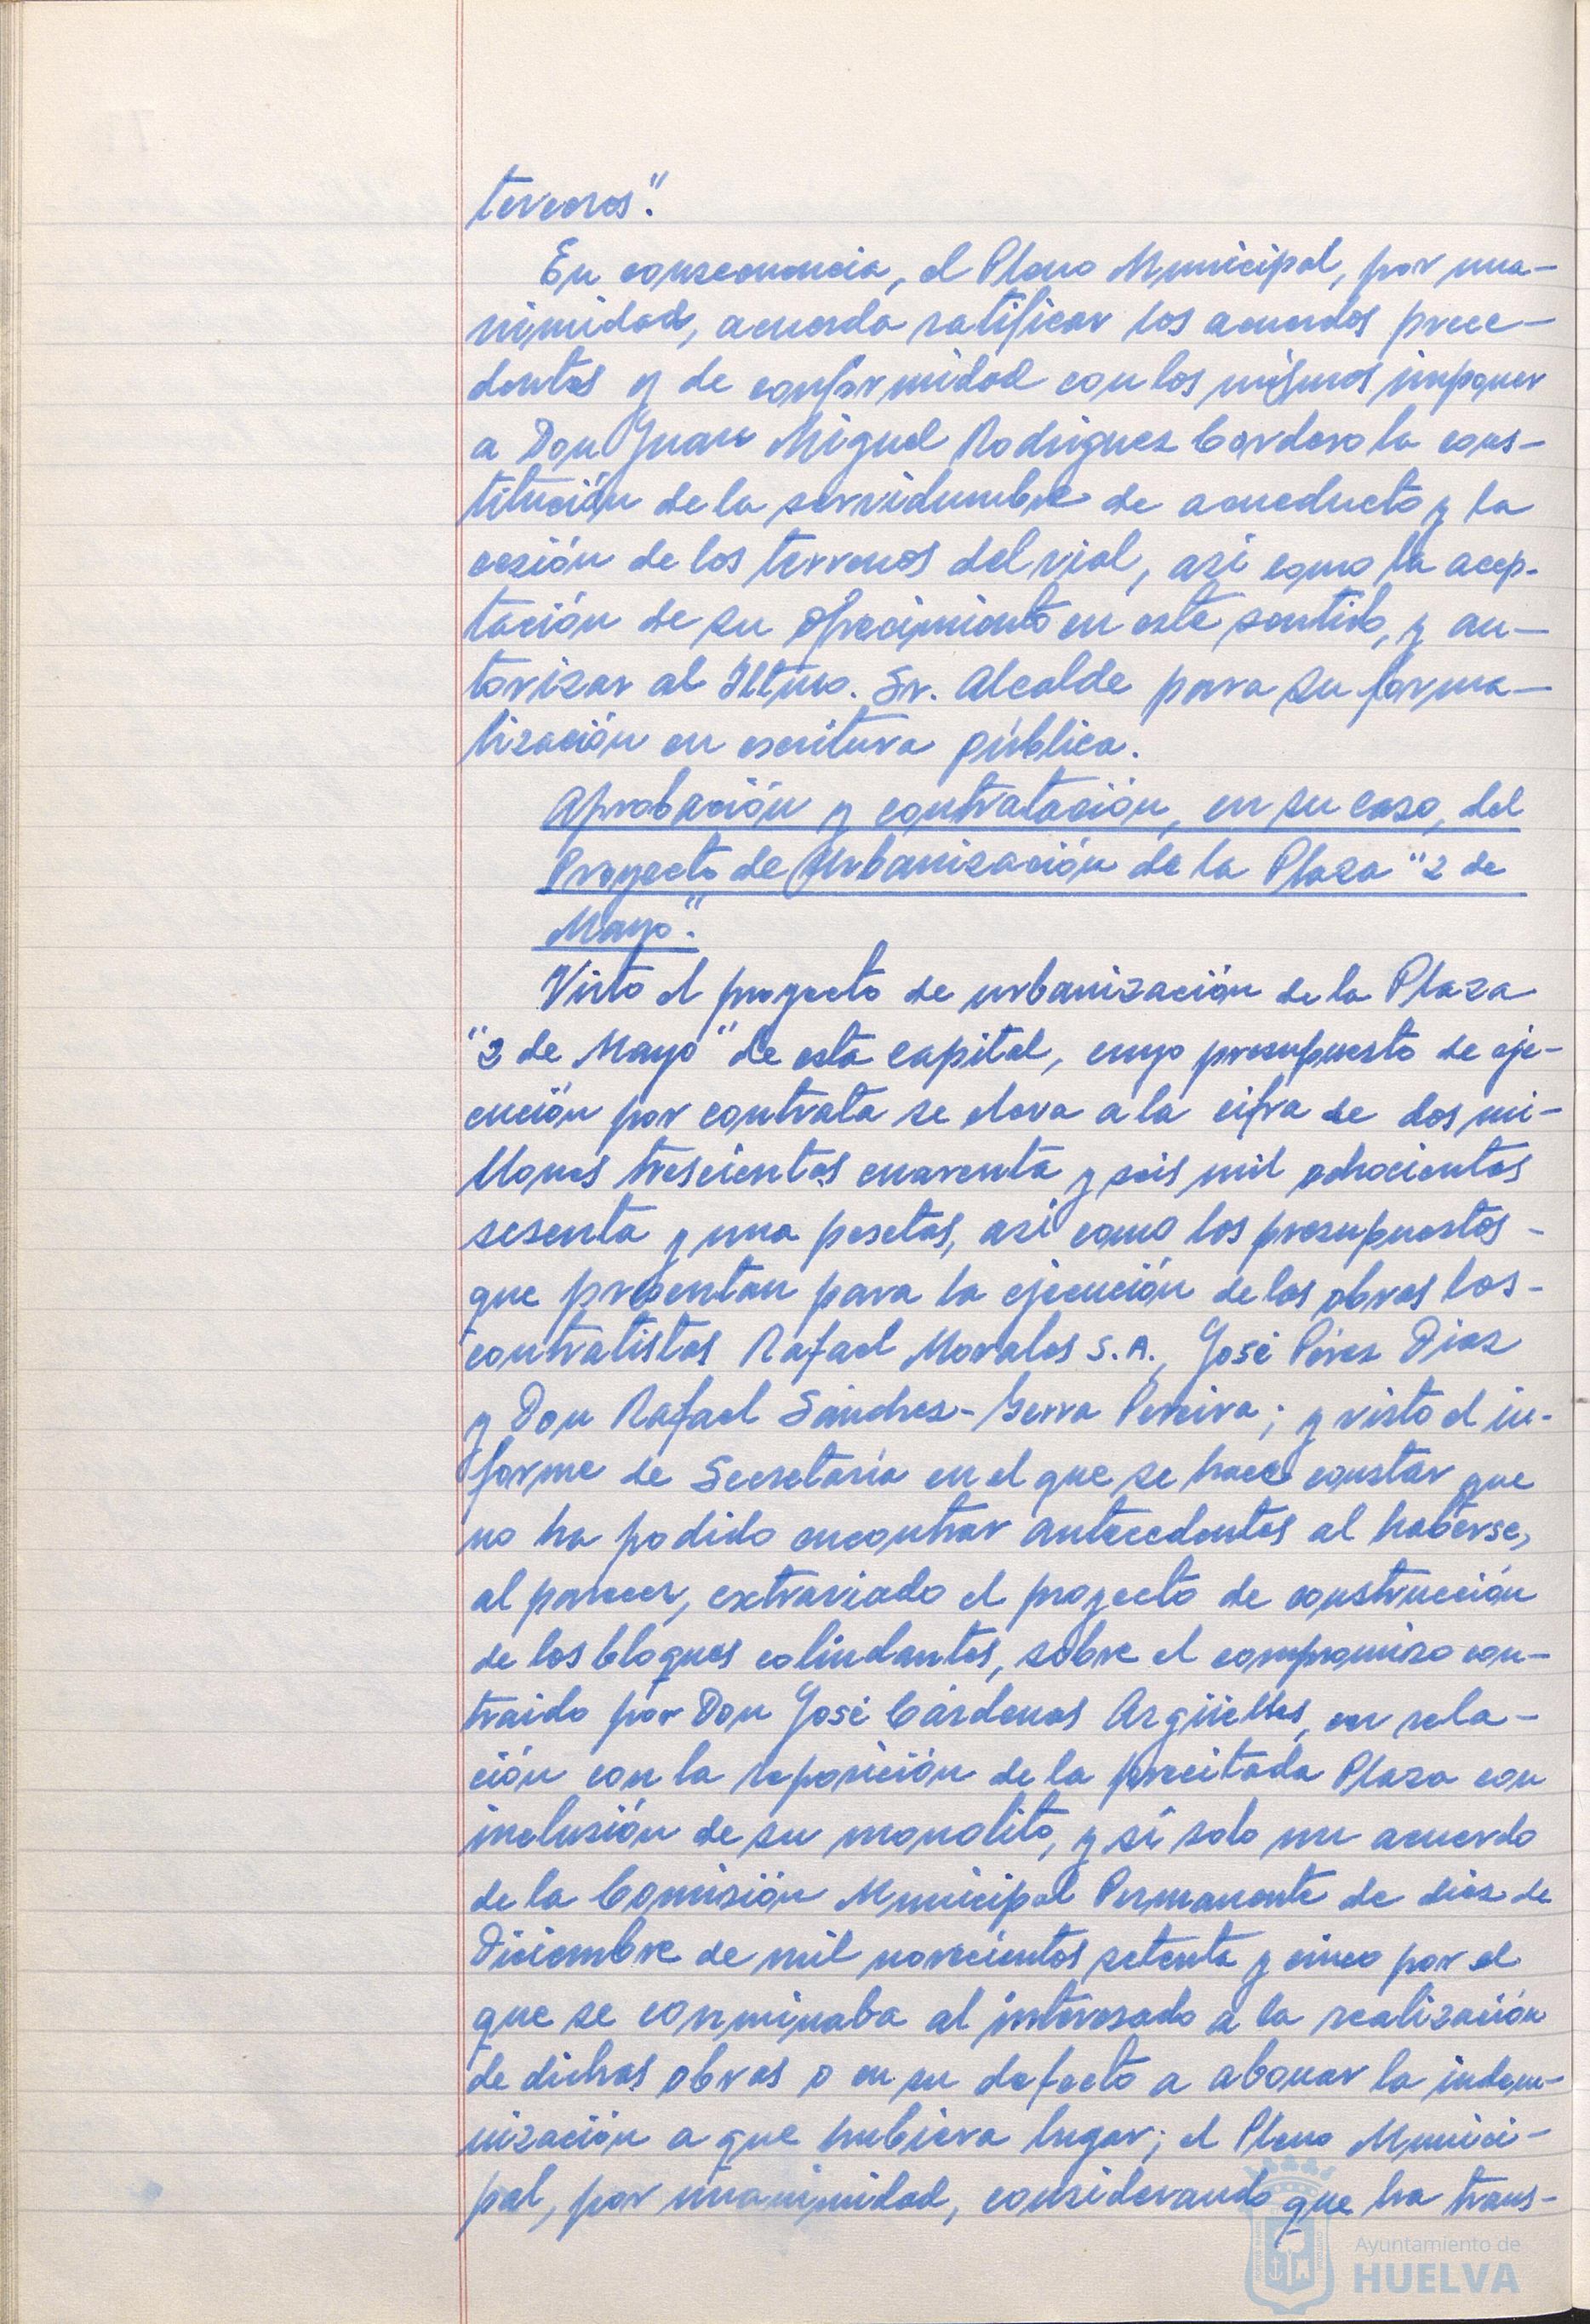 terceros".
En consecuencia, el Pleno Municipal, por una-
nimidad, acuerda ratificar los acuerdos prece-
dentes y de conformidad con los mismos imponer
a Don Juan Miguel Rodríguez Cordero la cons-
titución de la servidumbre de acueducto y la
cesión de los terrenos del vial, así como la acep-
tación de su ofrecimiento en este sentido, y au-
torizar al Iltmo. Sr. Alcalde para su forma-
lización en escritura pública.
Aprobación y contratación, en su caso, del
Proyecto de Urbanización de la Plaza "2 de
Mayo".
Visto el proyecto de urbanización de la Plaza
"2 de Mayo" de esta capital, cuyo presupuesto de eje-
cución por contrata se eleva a la cifra de dos mi-
llones trescientas cuarenta y seis mil ochocientas
sesenta y una pesetas, así como los presupuestos-
que presentan para la ejecución de las obras los-
contratistas Rafael Morales S.A., José Pérez Díaz
y Don Rafael Sánchez-Serra Pereira; y visto el in-
forme de Secretaría en el que se hace constar que
no ha podido encontrar antecedentes al haberse,
al parecer, extraviado el proyecto de construcción
de los bloques colindantes, sobre el compromiso con-
traido por Don José Cárdenas Argüelles, en rela-
ción con la reposición de la precitada Plaza con
inclusión de su monolito, y sí solo un acuerdo
de la Comisión Municipal Permanente de diez de
Diciembre de mil novecientos setenta y cinco por el
que se conminaba al interesado a la realización
de dichas obras o en su defecto a abonar la indem-
nización a que hubiera lugar; el Pleno Munici-
pal, por unanimidad, considerando que ha trans-
Ayuntamiento de
HUELVA